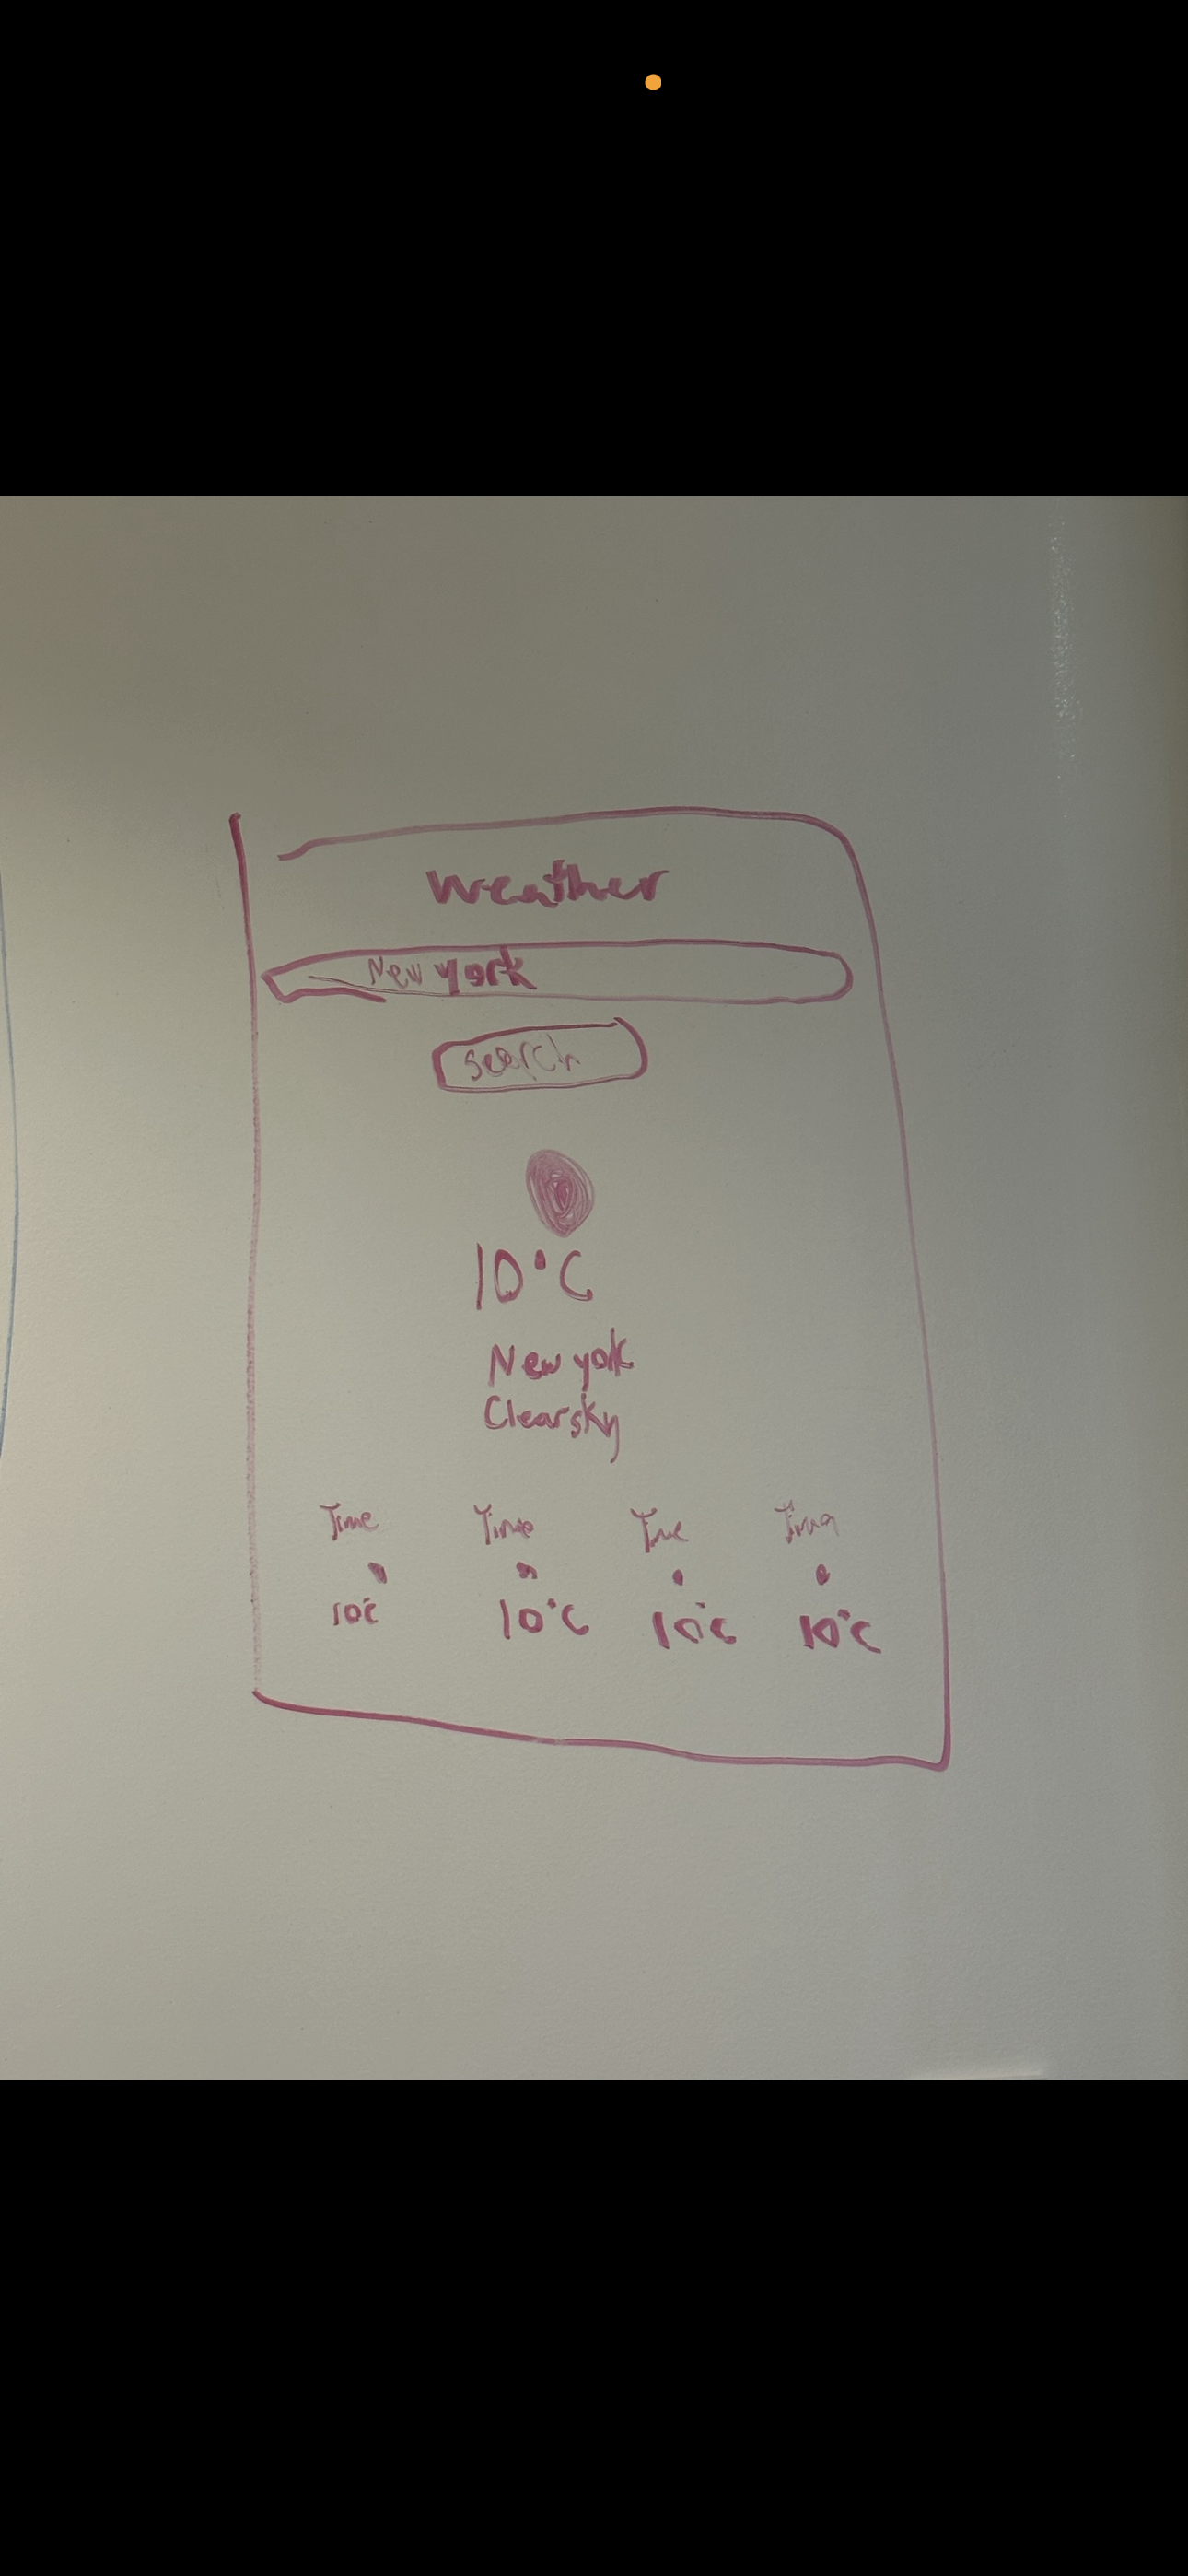 Weather
New york
Search
10°C
New york
Clearsky
Time Time Time Time
10°C 10°C 10°C 10°C